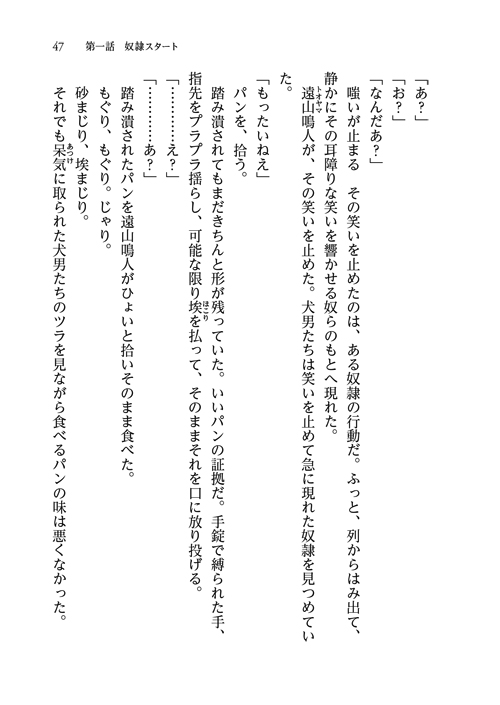 47　第一話　奴隷スタート
「あ？」
「お？」
「なんだあ？」
　嗤いが止まる　その笑いを止めたのは、ある奴隷の行動だ。ふっと、列からはみ出て、
静かにその耳障りな笑いを響かせる奴らのもとへ現れた。
　遠山鳴人が、その笑いを止めた。犬男たちは笑いを止めて急に現れた奴隷を見つめてい
トオヤマ
た。
「もったいねえ」
　パンを、拾う。
　踏み潰されてもまだきちんと形が残っていた。いいパンの証拠だ。手錠で縛られた手、
指先をプラプラ揺らし、可能な限り埃を払って、そのままそれを口に放り投げる。
ほこり
「…………え？」
「…………あ？」
　踏み潰されたパンを遠山鳴人がひょいと拾いそのまま食べた。
　もぐり、もぐり。じゃり。
　砂まじり、埃まじり。
　それでも呆気に取られた犬男たちのツラを見ながら食べるパンの味は悪くなかった。
あっけ